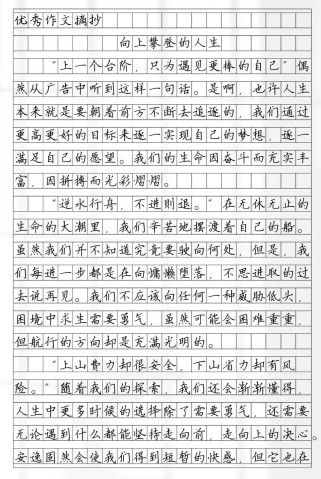 优秀作文摘抄
向上攀登的人生
“上一个台阶，只为遇见更棒的自己”偶
然从广告中听到这样一句话。是啊，也许人生
本来就是要朝着前方不断去追逐的，我们通过
更高更好的目标来逐一实现自己的梦想，逐一
满足自己的愿望。我们的生命因奋斗而充实丰
富，因拼搏而光彩熠熠。
“逆水行舟，不进则退。”在无休无止的
生命的大潮里，我们辛苦地摆渡着自己的船。
虽然我们并不知道究竟要驶向何处，但是，我
们每进一步都是在向慵懒堕落，不思进取的过
去说再见。我们不应该向任何一种威胁低头，
困境中求生需要勇气，虽然可能会困难重重，
但航行的方向却是充满光明的。
“上山费力却很安全，下山省力却有风
险。”随着我们的探索，我们还会渐渐懂得，
人生中更多时候的选择除了需要勇气，还需要
无论遇到什么都能坚持走向前，走向上的决心。
安逸固然会使我们得到短暂的快感，但它也在